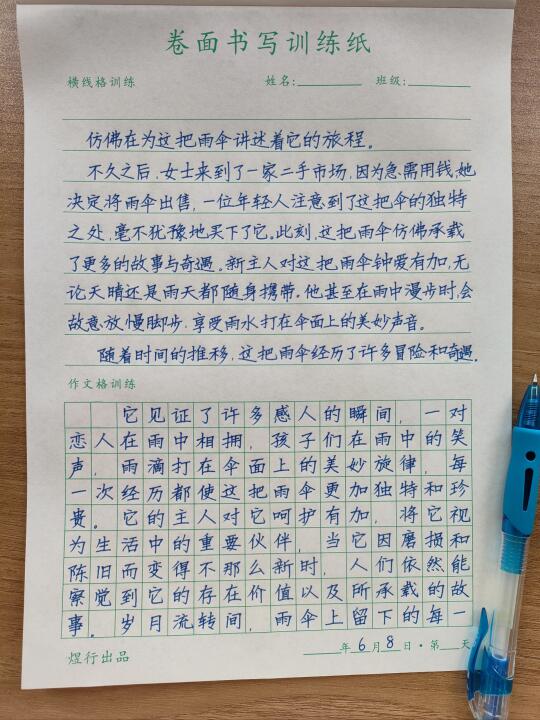 卷面书写训练纸
横线格训练 姓名: 班级:
仿佛在为这把雨伞讲述着它的旅程。
不久之后,女士来到了一家二手市场,因为急需用钱,她
决定将雨伞出售,一位年轻人注意到了这把伞的独特
之处,毫不犹豫地买下了它。此刻,这把雨伞仿佛承载
了更多的故事与奇遇。新主人对这把雨伞钟爱有加,无
论天晴还是雨天都随身携带。他甚至在雨中漫步时,会
故意放慢脚步,享受雨水打在伞面上的美妙声音。
随着时间的推移,这把雨伞经历了许多冒险和奇遇。
作文格训练
它见证了许多感人的瞬间,一对
恋人在雨中相拥,孩子们在雨中的笑
声,雨滴打在伞面上的美妙旋律,每
一次经历都使这把雨伞更加独特和珍
贵。它的主人对它呵护有加,将它视
为生活中的重要伙伴,当它因磨损和
陈旧而变得不那么新时,人们依然能
察觉到它的存在价值以及所承载的故
事。岁月流转间,雨伞上留下的每一
煜行出品 年6月8日·第 天